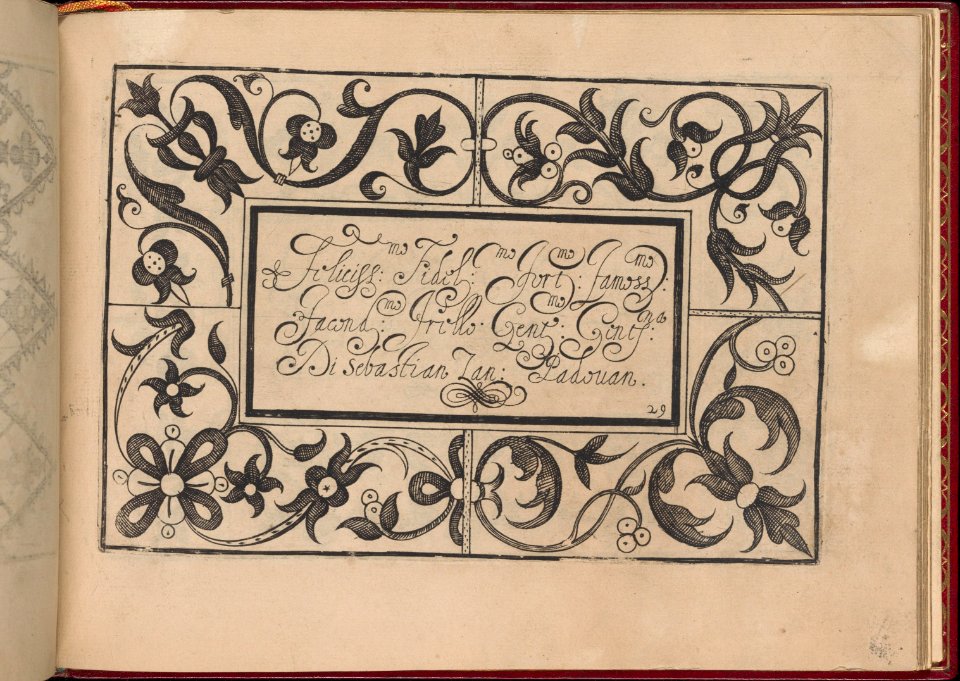 Feliciss:mo Fidel:mo Fort:mo Famoss:mo
Facond:mo Frillo Gent:mo Gentil:
Di Sebastian Zan: Padouan.
29